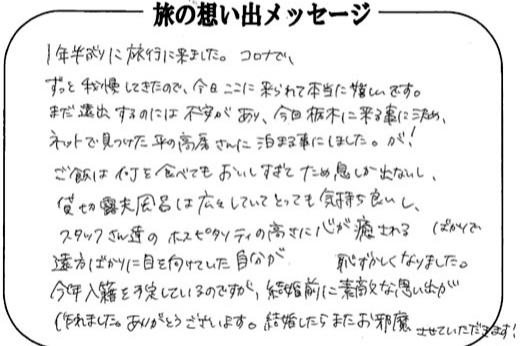 旅の想い出メッセージ
1年半ぶりに旅行に来ました。コロナで、
ずっと我慢してきたので、今日ここに来られて本当に嬉しいです。
まだ遠出するのには不安があり、今回栃木に来る事に決め、
ネットで見つけた平の高房さんに泊まる事にしました。が!
ご飯は何を食べてもおいしすぎてため息しか出ないし、
貸切露天風呂は広々していてとっても気持ち良いし、
スタッフさん達のホスピタリティの高さに心が癒される ばかりで
遠方ばかりに目を向けていた自分が 恥ずかしくなりました。
今年入籍を予定しているのですが、結婚前に素敵な思い出が
作れました。ありがとうございます。結婚したらまたお邪魔 させていただきます!